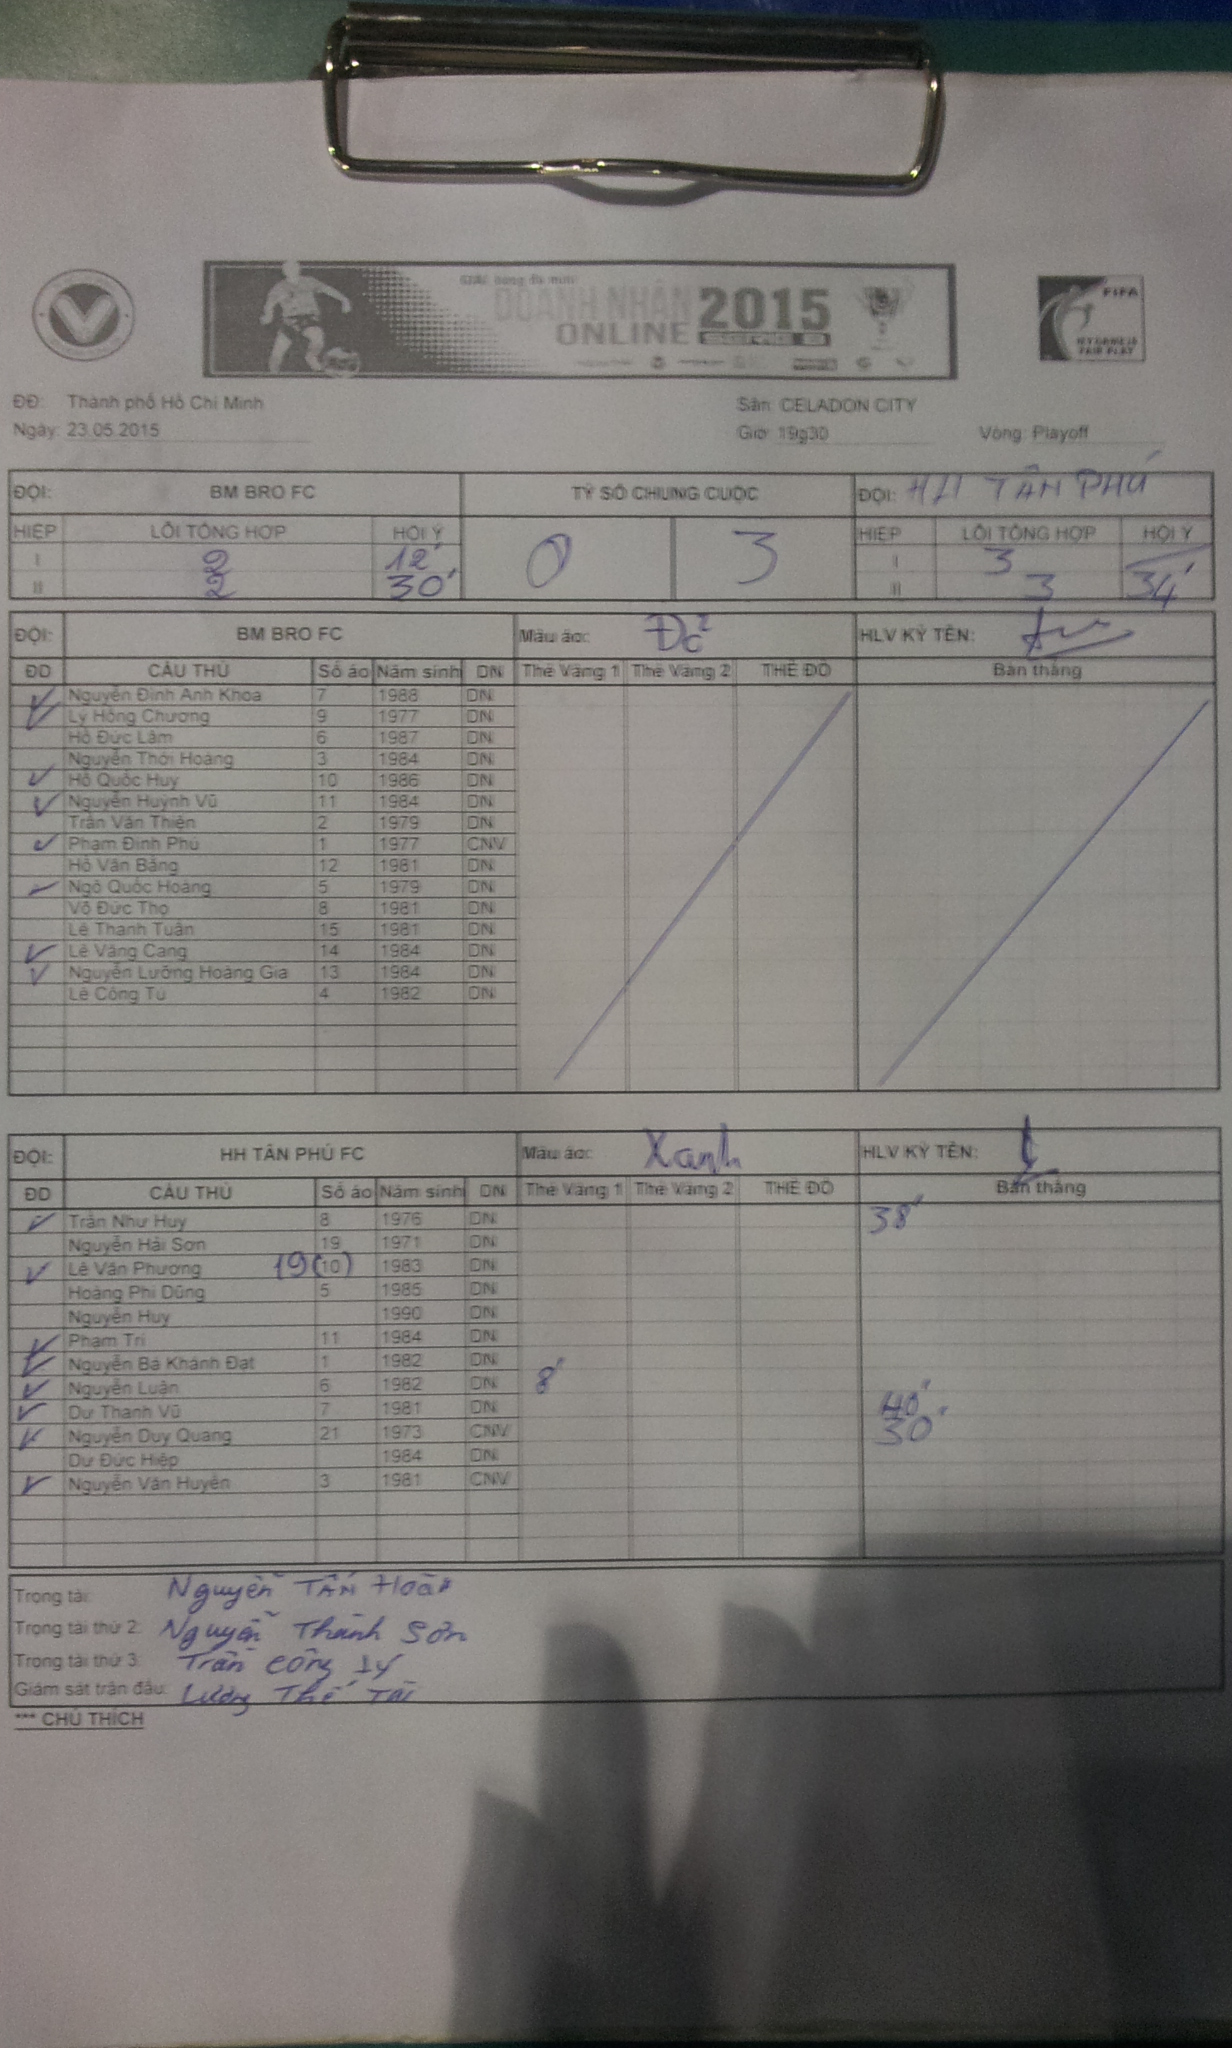 GIẢI bóng đá mini
DOANH NHÂN 2015
ONLINE
FIFA
FAIR PLAY
ĐĐ: Thành phố Hồ Chí Minh Sân: CELADON CITY
Ngày: 23.05.2015 Giờ: 19g30 Vòng: Playoff
ĐỘI: BM BRO FC TỶ SỐ CHUNG CUỘC ĐỘI: HH TÂN PHÚ
HIỆP LỖI TỔNG HỢP HỘI Ý 0 3 HIỆP LỖI TỔNG HỢP HỘI Ý
I 2 12' I 3
II 2 30' II 3 34'
ĐỘI: BM BRO FC Màu áo: Đỏ HLV KÝ TÊN:
ĐD CẦU THỦ Số áo Năm sinh DN Thẻ Vàng 1 Thẻ Vàng 2 THẺ ĐỎ Bàn thắng
Nguyễn Đình Anh Khoa 7 1988 DN
Lý Hồng Chương 9 1977 DN
Hồ Đức Lâm 6 1987 DN
Nguyễn Thới Hoàng 3 1984 DN
Hồ Quốc Huy 10 1986 DN
Nguyễn Huỳnh Vũ 11 1984 DN
Trần Văn Thiện 2 1979 DN
Phạm Đình Phú 1 1977 CNV
Hồ Văn Bằng 12 1981 DN
Ngô Quốc Hoàng 5 1979 DN
Võ Đức Thọ 8 1981 DN
Lê Thanh Tuấn 15 1981 DN
Lê Vàng Cang 14 1984 DN
Nguyễn Lưỡng Hoàng Gia 13 1984 DN
Lê Công Tú 4 1982 DN
ĐỘI: HH TÂN PHÚ FC Màu áo: Xanh HLV KÝ TÊN:
ĐD CẦU THỦ Số áo Năm sinh DN Thẻ Vàng 1 Thẻ Vàng 2 THẺ ĐỎ Bàn thắng
Trần Như Huy 8 1976 DN 38'
Nguyễn Hải Sơn 19 1971 DN
Lê Văn Phương 19 (10) 1983 DN
Hoàng Phi Dũng 5 1985 DN
Nguyễn Huy 1990 DN
Phạm Trí 11 1984 DN
Nguyễn Bá Khánh Đạt 1 1982 DN
Nguyễn Luận 6 1982 DN 8'
Dư Thanh Vũ 7 1981 DN 40'
Nguyễn Duy Quang 21 1973 CNV 30'
Dư Đức Hiệp 1984 DN
Nguyễn Văn Huyên 3 1981 CNV
Trọng tài: Nguyễn Tấn Hoài
Trọng tài thứ 2: Nguyễn Thành Sơn
Trọng tài thứ 3: Trần Công Lý
Giám sát trận đấu: Lương Thế Tài
*** CHÚ THÍCH